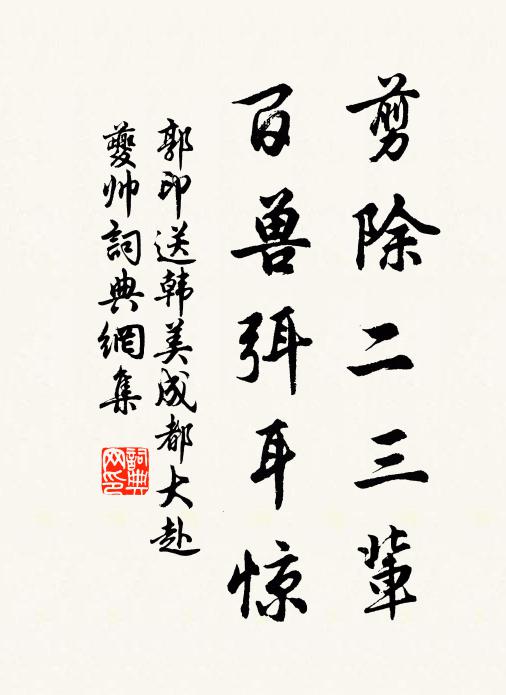 剪除二三輩
百兽弭耳惊
郭印送韩美成都大赴
夔帅詞典網集
詞典网印